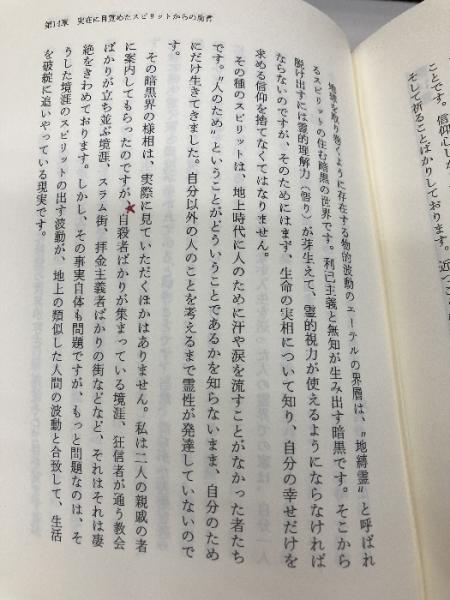 第11章 実在に目覚めたスピリットからの鼓
ことです。信仰心
そして祈ることばかりしております。近づこ
地球を取り巻くように存在する物的波動のエーテルの界層は、〝地縛霊〟と呼ばれ
るスピリットの住む暗黒の世界です。利己主義と無知が生み出す暗黒です。そこから
脱け出すには霊的理解力（悟り）が芽生えて、霊的視力が使えるようにならなければ
ならないのですが、そのためにはまず、生命の実相について知り、自分の幸せだけを
求める信仰を捨てなくてはなりません。
その種のスピリットは、地上時代に人のために汗や涙を流すことがなかった者たち
です。〝人のため〟ということがどういうことであるかを知らないまま、自分のため
にだけ生きてきました。自分以外の人のことを考えるまで霊性が発達していないので
す。
その暗黒界の様相は、実際に見ていただくほかはありません。私は二人の親戚の者
に案内してもらったのですが、自殺者ばかりが集まっている境涯、狂信者が通う教会
ばかりが立ち並ぶ境涯、スラム街、拝金主義者ばかりの街などなど、それはそれは凄
絶をきわめております。しかし、その事実自体も問題ですが、もっと問題なのは、そ
うした境涯のスピリットの出す波動が、地上の類似した人間の波動と合致して、生活
を破綻に追いやっている現実です。